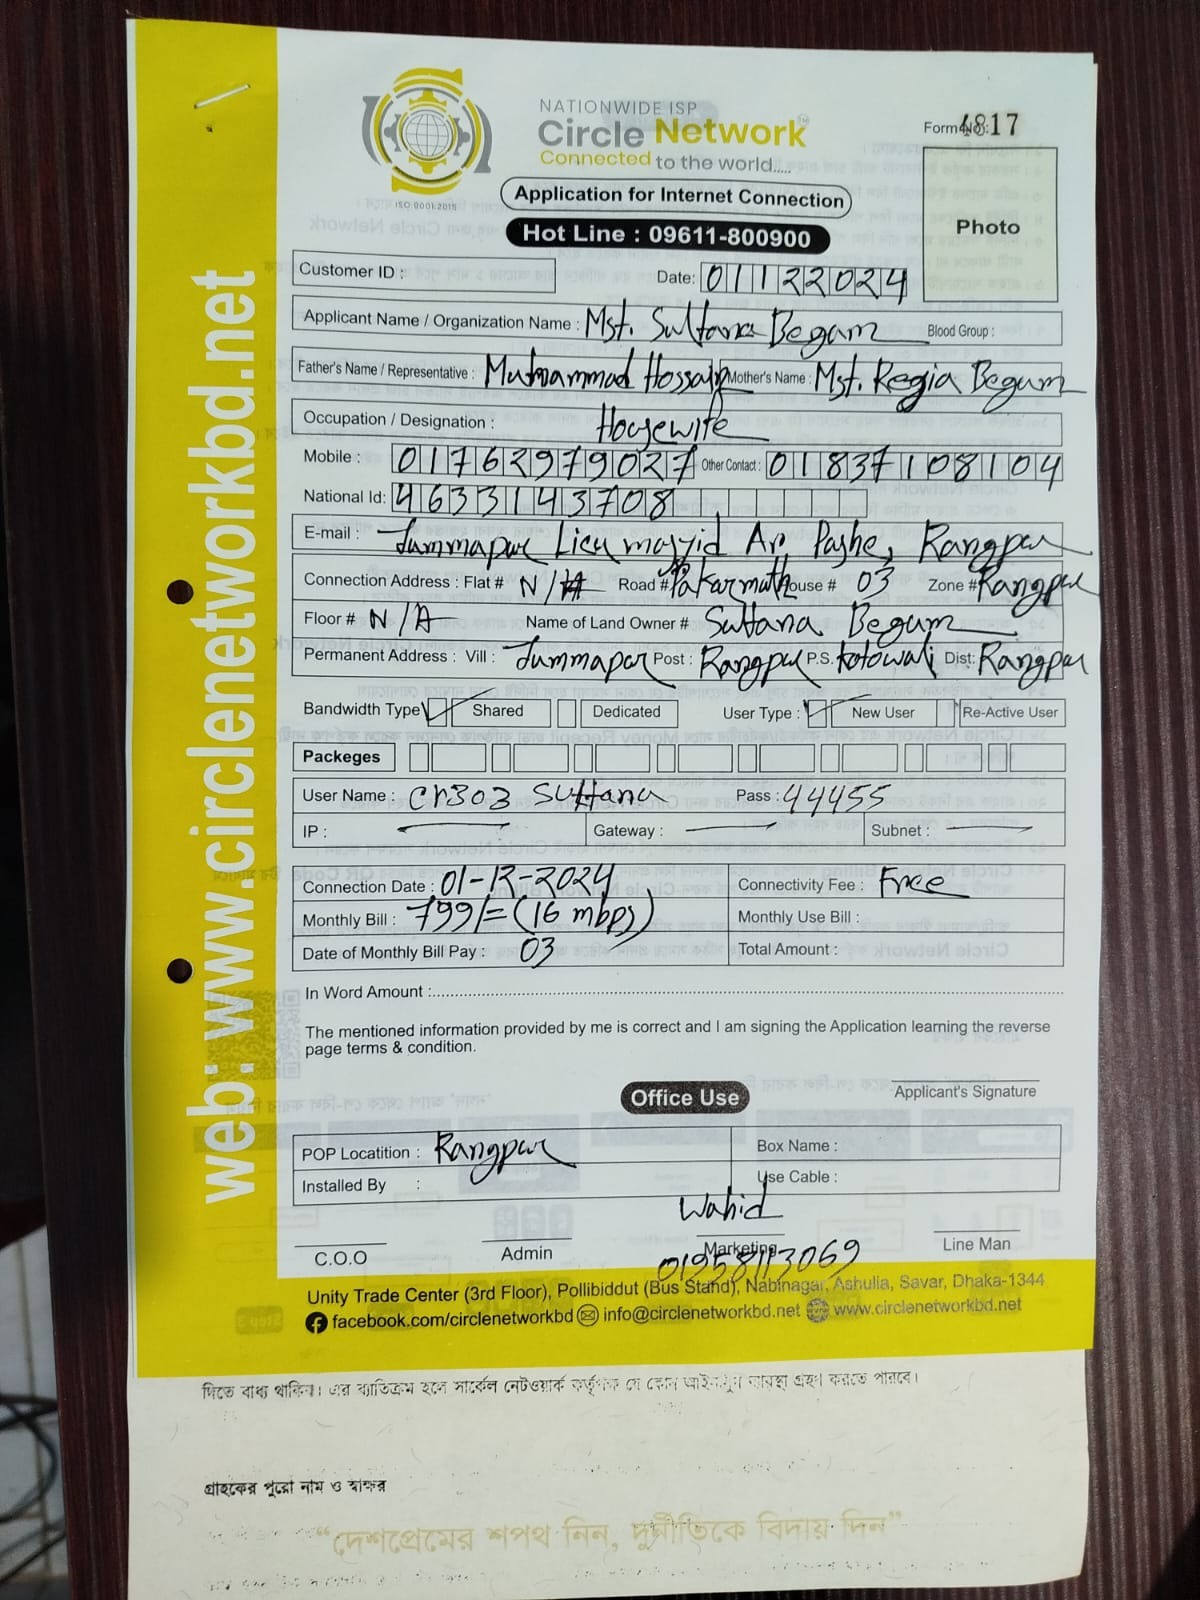 NATIONWIDE ISP
Circle Network™
Connected to the world.....
ISO:9001:2015
Form No: 4817
Application for Internet Connection
Hot Line : 09611-800900
Photo
Customer ID :
Date: 01122024
Applicant Name / Organization Name : Mst. Sultana Begum Blood Group :
Father's Name / Representative : Muhammad Hossain Mother's Name : Mst. Regia Begum
Occupation / Designation : Housewife
Mobile : 01762979027 Other Contact : 01837108104
National Id: 4633143708
E-mail : Jummapur Rangpur
Connection Address : Flat # N/A Road # Pakarmath House # 03 Zone # Rangpur
Floor # N/A Name of Land Owner # Sultana Begum
Permanent Address : Vill : Jummapur Post : Rangpur P.S. kotowali Dist: Rangpur
Bandwidth Type Shared Dedicated User Type : New User Re-Active User
Packeges
User Name : cr303 sultana Pass : 44455
IP : Gateway : Subnet :
Connection Date : 01-12-2024 Connectivity Fee : Free
Monthly Bill : 799/= (16 mbps) Monthly Use Bill :
Date of Monthly Bill Pay : 03 Total Amount :
In Word Amount :
The mentioned information provided by me is correct and I am signing the Application learning the reverse
page terms & condition.
Applicant's Signature
Office Use
POP Locatition : Rangpur Box Name :
Installed By : Use Cable :
Wahid
C.O.O Admin Marketing Line Man
01958113069
Unity Trade Center (3rd Floor), Pollibiddut (Bus Stand), Nabinagar, Ashulia, Savar, Dhaka-1344
facebook.com/circlenetworkbd info@circlenetworkbd.net www.circlenetworkbd.net
web: www.circlenetworkbd.net
দিতে বাধ্য থাকিব। এর ব্যতিক্রম হলে সার্কেল নেটওয়ার্ক কর্তৃপক্ষ যে কোন আইনানুগ ব্যবস্থা গ্রহণ করতে পারবে।
গ্রাহকের পুরো নাম ও স্বাক্ষর
“দেশপ্রেমের শপথ নিন, দুর্নীতিকে বিদায় দিন”